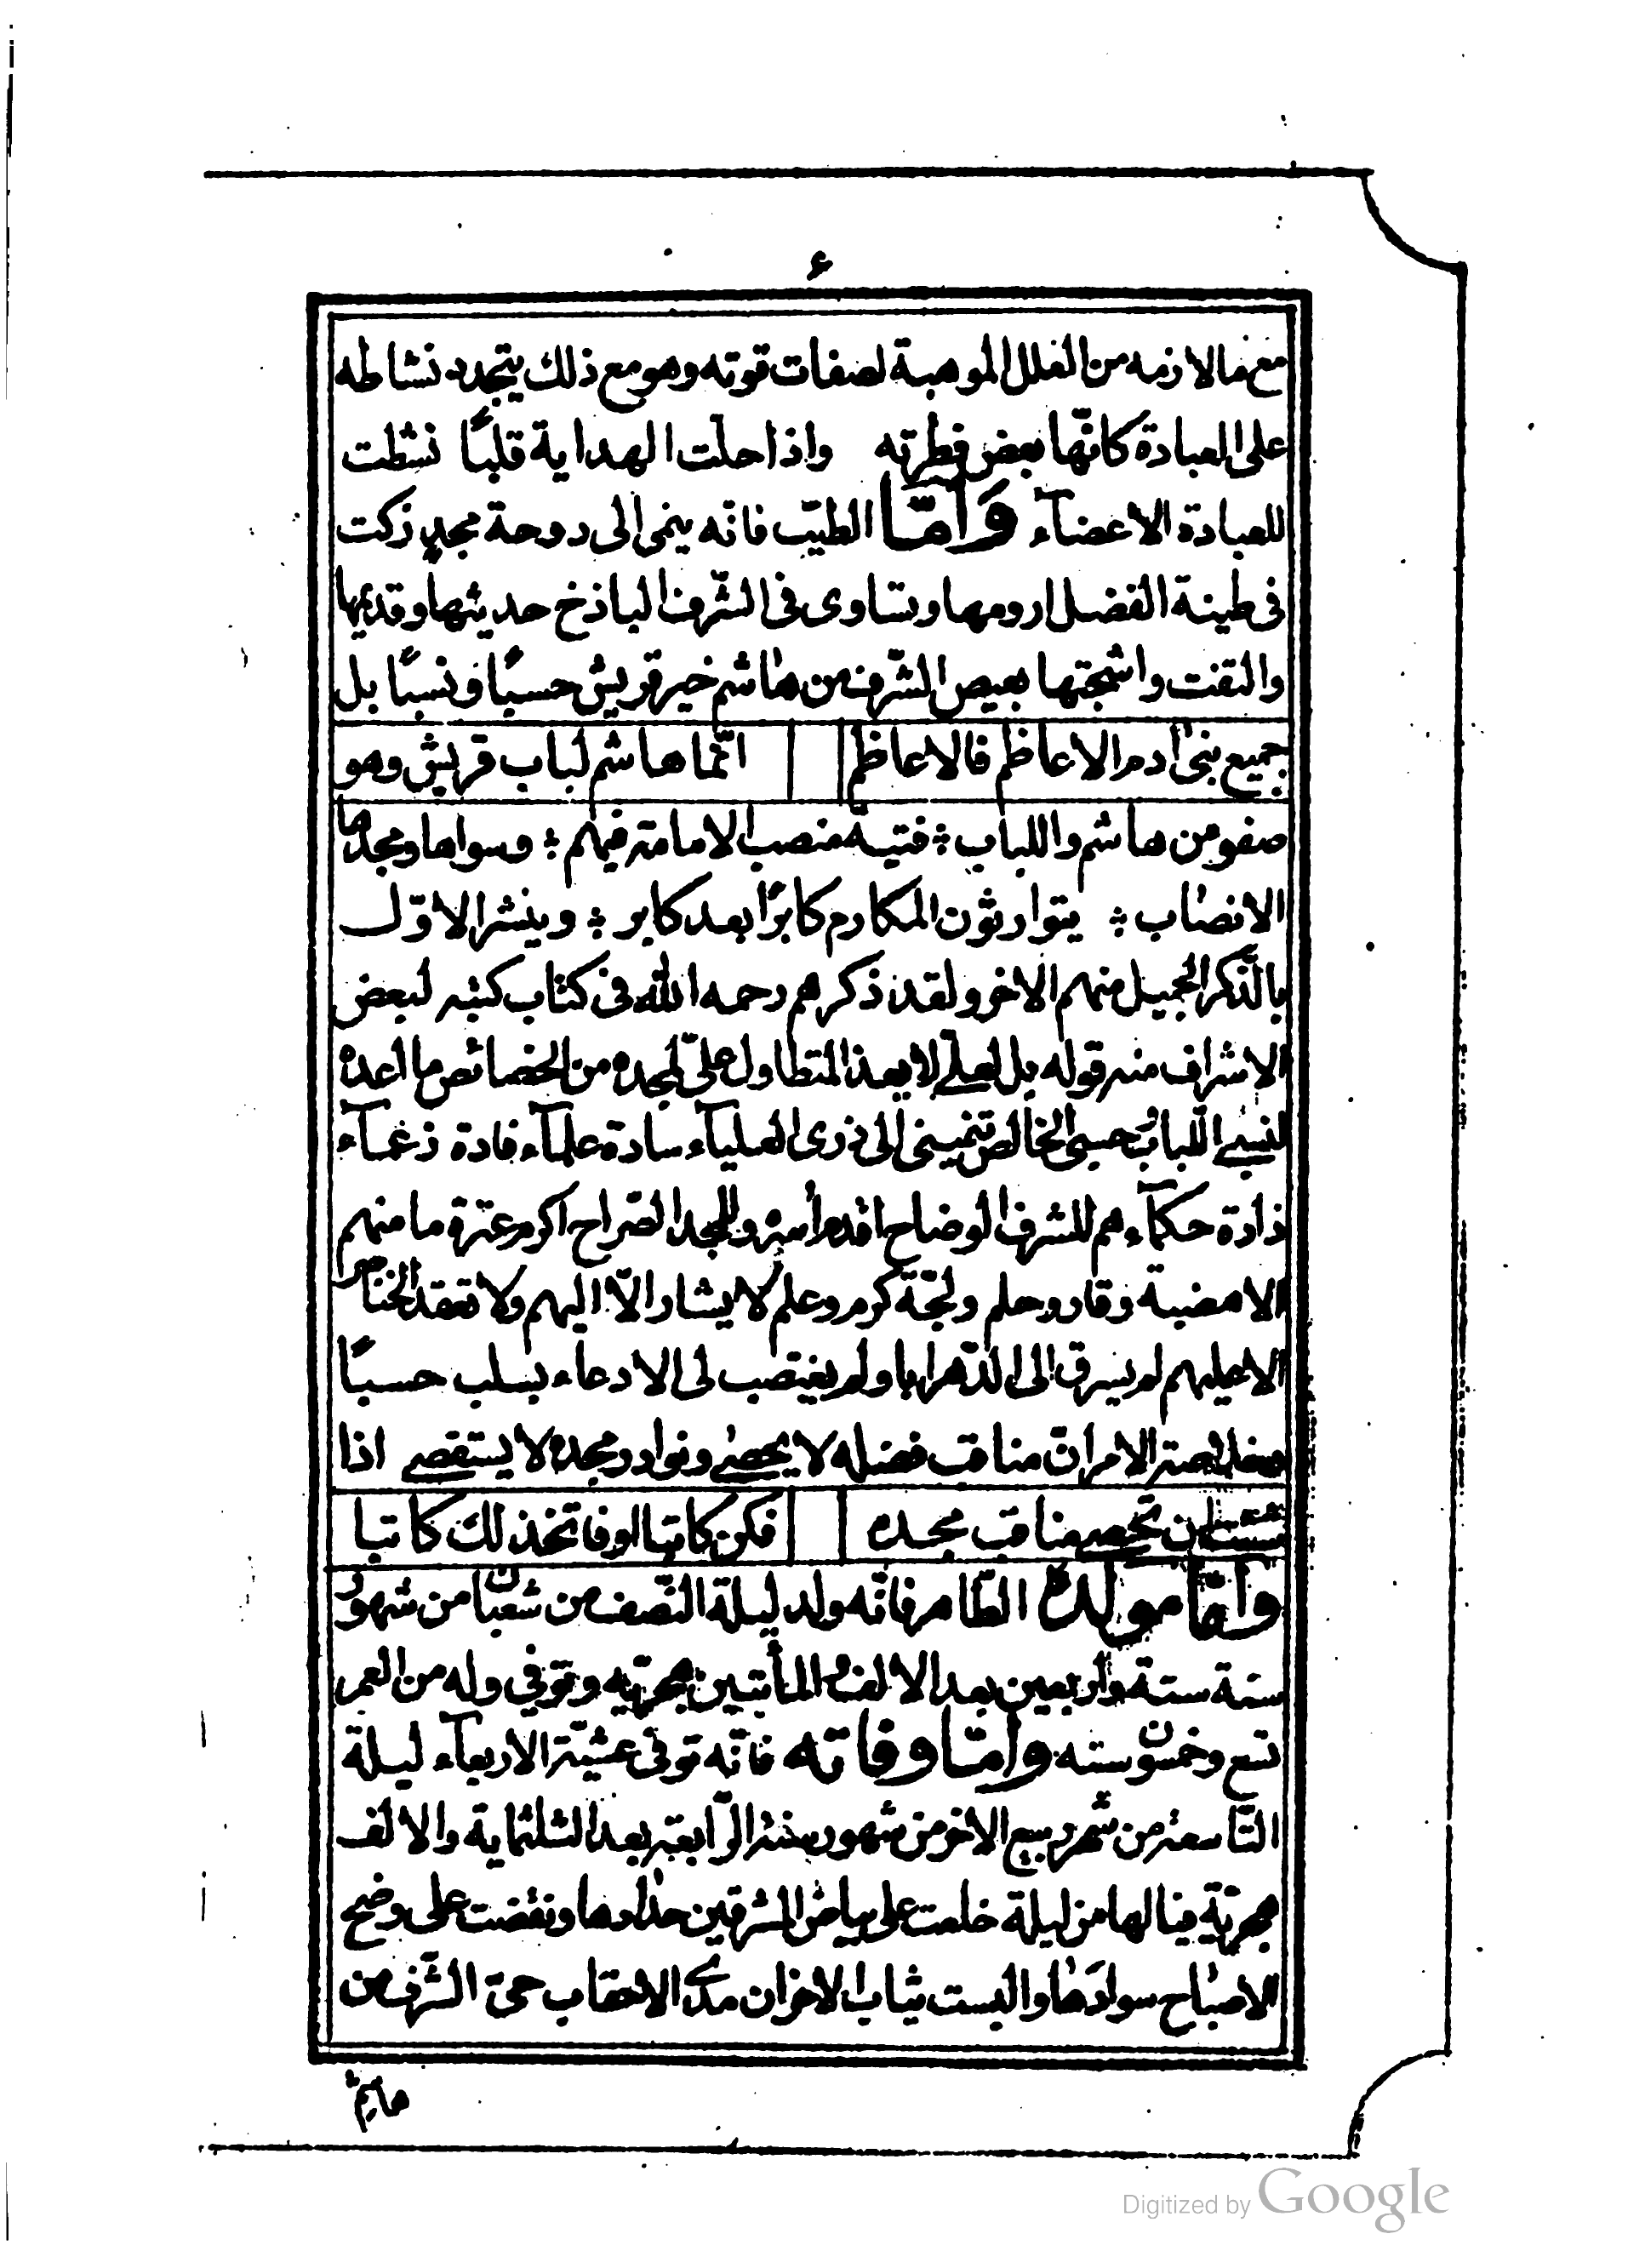 ٤
مع ما لازمه من العلل الموهبة لصفات قوته وهو مع ذلك يتجدد نشاطه
على العبادة كانّها بعض فطرته واذا حلّت الهداية قلبًا نشطت
للعبادة الاعضآء وَامّا الطيّب فانّه ينمى الى دوحة مجدٍ زكت
فى طينة الفضل ارومها وتساوى فى الشّرف الباذخ حديثها وقديمها
والتفت واشجتها بعيص الشّرف من هاشم خير قريش حسبًا ونسبًا بل
جميع بنى ادم الاعاظم فالاعاظم انّما هاشم لباب قريش وهو
صفو من هاشم واللباب ؛ فتية منصب الامامة فيهم ؛ وسواها ومجدها
الانصاب ؛ يتوارثون المكارم كابرًا بعد كابر ؛ وينشر الاوّل
بالذّكر الجميل منهم الاخر ولقد ذكرهم رحمه الله فى كتاب كتبه لبعض
الاشراف منه قوله بل لعلّى لا يعد المتطاول علىّ لمجده من الخصائص ما اعده
لنسبى اللّباب حسبى الخالص تنمينى الى ذرى العليآء سادة علمآء قادة زعمآء
ذادة حكمآء هم للشرف الوضاح اقدم أسرة وللمجد الصّراح اكرم عترة ما منهم
الا هضبة وقار وحلم ولجّة كرم وعلم لا يشار الّا اليهم ولا تعقد الخناصر
الا عليهم لم يسرق الى الدّهر ابا ولم يغتصب لى الادعاء بسلب حسبًا
الامر انّ مناقب فضله لا يحصى ونوادر مجده لا يستقصى اذا
شئت ان تحصى مناقب مجده فكن كاتبا او فاتخذ لك كاتبا
وامّا مولده الطّاهر فانّه ولد ليلة النّصف من شعبان من شهور
سنة ستة واربعين بعد الالف والمأتين هجريّه وتوفى وله من العمر
تسع وخمسون سنه وامّا وفاته فانّه توفى عشيّة الاربعآء ليلة
التّاسعة من شهر ربيع الاخر من شهور سنة الرّابعة بعد الثلثماية والالف
هجريّة فيا لها من ليلة خلعت على بياض المشرقين حدادها ونفضت على وضح
الاصباح سوادَها والبست ثياب الاحزان مدى الاحقاب حىّ الشّرف من
هاشم